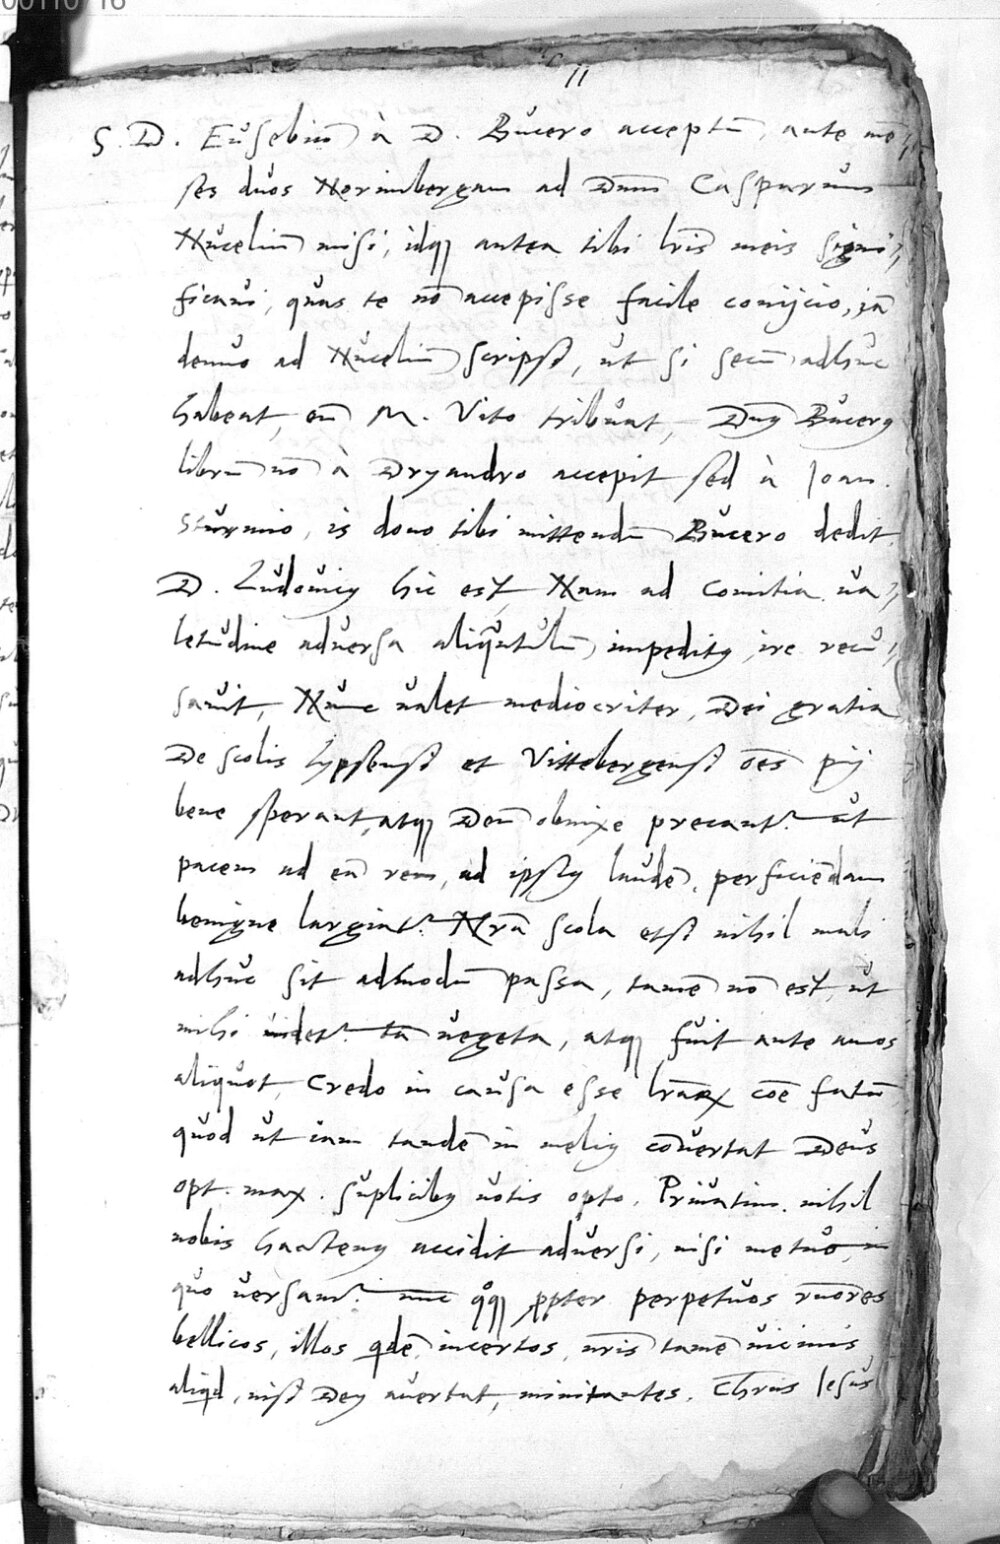 00110 16
11
S. D. Eusebiū à D. Bucero acceptū, ante mē⸗
ses duos Norimbergam ad Dnm̄ Casparum
Nucelliū misi, idqꝫ antea tibi lr̄is meis signi⸗
ficaui, quas te nō accepisse facile conijcio, iā
denuo ad Nuceliū scripsi, ut si secū adhuc
habeat, eū M. Vito tribuat, Dn̄ꝰ Bucerꝰ
librū nō à Dryandro accepit sed à Joan.
Sturmio, is dono tibi mittendū Bucero dedit.
D. Ludouicꝰ hic est, Nam ad comitia ua⸗
letudine aduersa aliqūtulū impeditꝰ, ire recu⸗
sauit, Nunc ualet mediocriter, Dei gratia
De scolis Lypsensi et Vittebergensi oēs pij
bene sperant, atqꝫ Deū obnixe precantr̄ ut
pacem ad eā rem, ad ipsiꝰ laudē, perficiēdam
benigne largiatr̄ Nr̄a scola etsi nihil mali
adhuc sit admodū passa, tamē nō est, ut
mihi uidetr̄ tā uegeta, atqꝫ fuit ante annos
aliquot, Credo in causa esse lr̄arꝝ cōe fatū
quod ut iam tandē in meliꝰ cōuertat Deus
opt. max. suplicibꝰ uotis opto. Priuatim nihil
nobis hactenꝰ accidit aduersi, nisi metuo, in
quo uersamr̄ nunc qͦqꝫ ꝓpter perpetuos rūores
bellicos, illos qdē incertos, nr̄is tamē uicinis
aliqd, nisi Deꝰ auertat, minitantes. Chr̄us Jesus